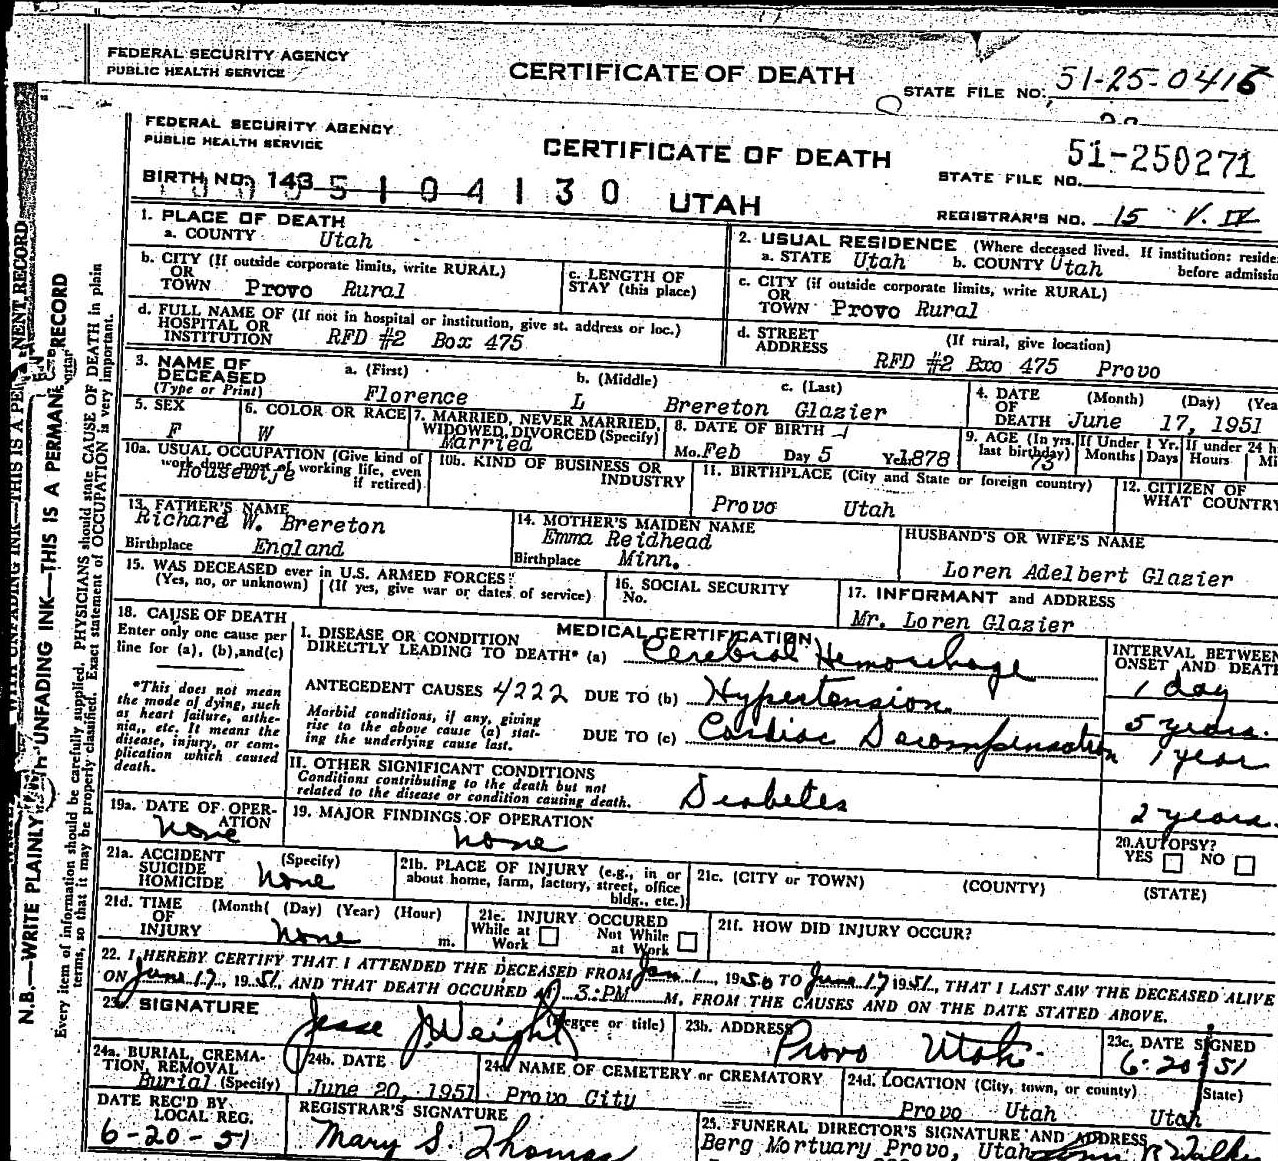 FEDERAL SECURITY AGENCY
PUBLIC HEALTH SERVICE
CERTIFICATE OF DEATH
STATE FILE NO. 51-25-0416
FEDERAL SECURITY AGENCY
PUBLIC HEALTH SERVICE
CERTIFICATE OF DEATH
STATE FILE NO. 51-250271
BIRTH NO. 143
5 1 0 4 1 3 0
UTAH
REGISTRAR'S NO. 15 V. IV
1. PLACE OF DEATH
a. COUNTY Utah
2. USUAL RESIDENCE (Where deceased lived. If institution: reside
a. STATE Utah b. COUNTY Utah before admissio
b. CITY (If outside corporate limits, write RURAL)
OR
TOWN Provo Rural
c. LENGTH OF
STAY (this place)
c. CITY (if outside corporate limits, write RURAL)
OR
TOWN Provo Rural
d. FULL NAME OF (If not in hospital or institution, give st. address or loc.)
HOSPITAL OR
INSTITUTION RFD #2 Box 475
d. STREET
ADDRESS
(If rural, give location)
RFD #2 Bxo 475 Provo
3. NAME OF
DECEASED
(Type or Print)
a. (First)
Florence
b. (Middle)
L
c. (Last)
Brereton Glazier
4. DATE
OF
DEATH
(Month) (Day) (Yea
June 17, 1951
5. SEX
F
6. COLOR OR RACE
W
7. MARRIED, NEVER MARRIED,
WIDOWED, DIVORCED (Specify)
Married
8. DATE OF BIRTH
Mo. Feb Day 5 Yr. 1878
9. AGE (In yrs.
last birthday)
73
If Under 1 Yr.
Months Days
If under 24 h
Hours Mi
10a. USUAL OCCUPATION (Give kind of
work done most of working life, even
if retired)
Housewife
10b. KIND OF BUSINESS OR
INDUSTRY
11. BIRTHPLACE (City and State or foreign country)
Provo Utah
12. CITIZEN OF
WHAT COUNTRY
13. FATHER'S NAME
Richard W. Brereton
Birthplace England
14. MOTHER'S MAIDEN NAME
Emma Reidhead
Birthplace Minn.
HUSBAND'S OR WIFE'S NAME
Loren Adelbert Glazier
15. WAS DECEASED ever in U.S. ARMED FORCES?
(Yes, no, or unknown) (If yes, give war or dates of service)
16. SOCIAL SECURITY
No.
17. INFORMANT and ADDRESS
Mr. Loren Glazier
18. CAUSE OF DEATH
Enter only one cause per
line for (a), (b), and (c)
*This does not mean
the mode of dying, such
as heart failure, asthe-
nia,, etc. It means the
disease, injury, or com-
plication which caused
death.
MEDICAL CERTIFICATION
I. DISEASE OR CONDITION
DIRECTLY LEADING TO DEATH* (a) Cerebral Hemorrhage
INTERVAL BETWEEN
ONSET AND DEATH
1 day
ANTECEDENT CAUSES 4222 DUE TO (b) Hypertension
5 years.
Morbid conditions, if any, giving
rise to the above cause (a) stat-
ing the underlying cause last.
DUE TO (c) Cardiac Decompensation
1 year
II. OTHER SIGNIFICANT CONDITIONS
Conditions contributing to the death but not
related to the disease or condition causing death.
Diabetes
2 years.
19a. DATE OF OPER-
ATION
none
19. MAJOR FINDINGS OF OPERATION
none
20. AUTOPSY?
YES NO
21a. ACCIDENT
SUICIDE
HOMICIDE
(Specify)
none
21b. PLACE OF INJURY (e.g., in or
about home, farm, factory, street, office
bldg., etc.)
21c. (CITY or TOWN) (COUNTY) (STATE)
21d. TIME
OF
INJURY
(Month( (Day) (Year) (Hour)
none m.
21e. INJURY OCCURED
While at
Work
Not While
at Work
21f. HOW DID INJURY OCCUR?
22. I HEREBY CERTIFY THAT I ATTENDED THE DECEASED FROM Jan 1, 1950 TO June 17 1951, THAT I LAST SAW THE DECEASED ALIVE
ON June 17, 1951, AND THAT DEATH OCCURED AT 3:PM M, FROM THE CAUSES AND ON THE DATE STATED ABOVE.
23. SIGNATURE
Jesse J. Weight
(Degree or title)
23b. ADDRESS
Provo Utah
23c. DATE SIGNED
6-20-51
24a. BURIAL, CREMA-
TION, REMOVAL
Burial (Specify)
24b. DATE
June 20, 1951
24c NAME OF CEMETERY or CREMATORY
Provo City
24d. LOCATION (City, town, or county) State)
Provo Utah Utah
DATE REC'D BY
LOCAL REG.
6-20-51
REGISTRAR'S SIGNATURE
Mary S. Thomas
25. FUNERAL DIRECTOR'S SIGNATURE AND ADDRESS
Berg Mortuary Provo, Utah
N.B.—WRITE PLAINLY WITH UNFADING INK—THIS IS A PERMANENT RECORD
Every item of information should be carefully supplied. PHYSICIANS should state CAUSE OF DEATH in plain
terms, so that it may be properly classified. Exact statement of OCCUPATION is very important.